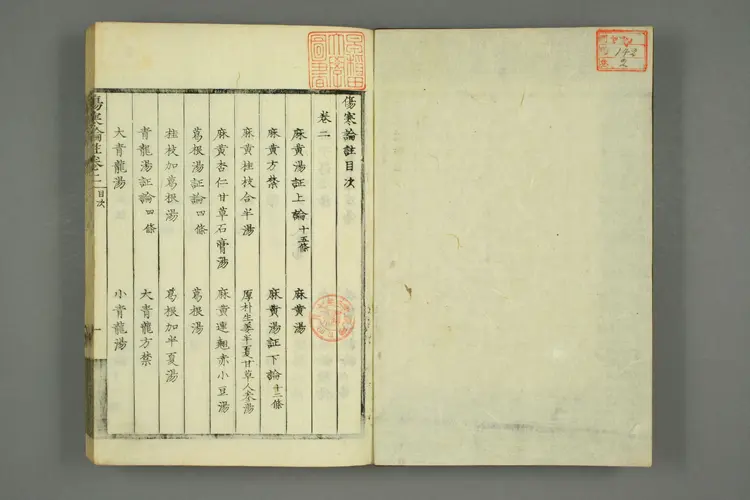 傷寒論註目次
卷二
麻黄湯証上論十五條 麻黄湯
麻黄方禁 麻黄湯証下論十三條
麻黄桂枝合半湯 厚朴生姜半夏甘草人参湯
麻黄杏仁甘草石膏湯 麻黄連翹赤小豆湯
葛根湯証論四條 葛根湯
桂枝加葛根湯 葛根加半夏湯
青龍湯証論四條 大青龍方禁
大青龍湯 小青龍湯
傷寒論註卷二 目次 一
142
2